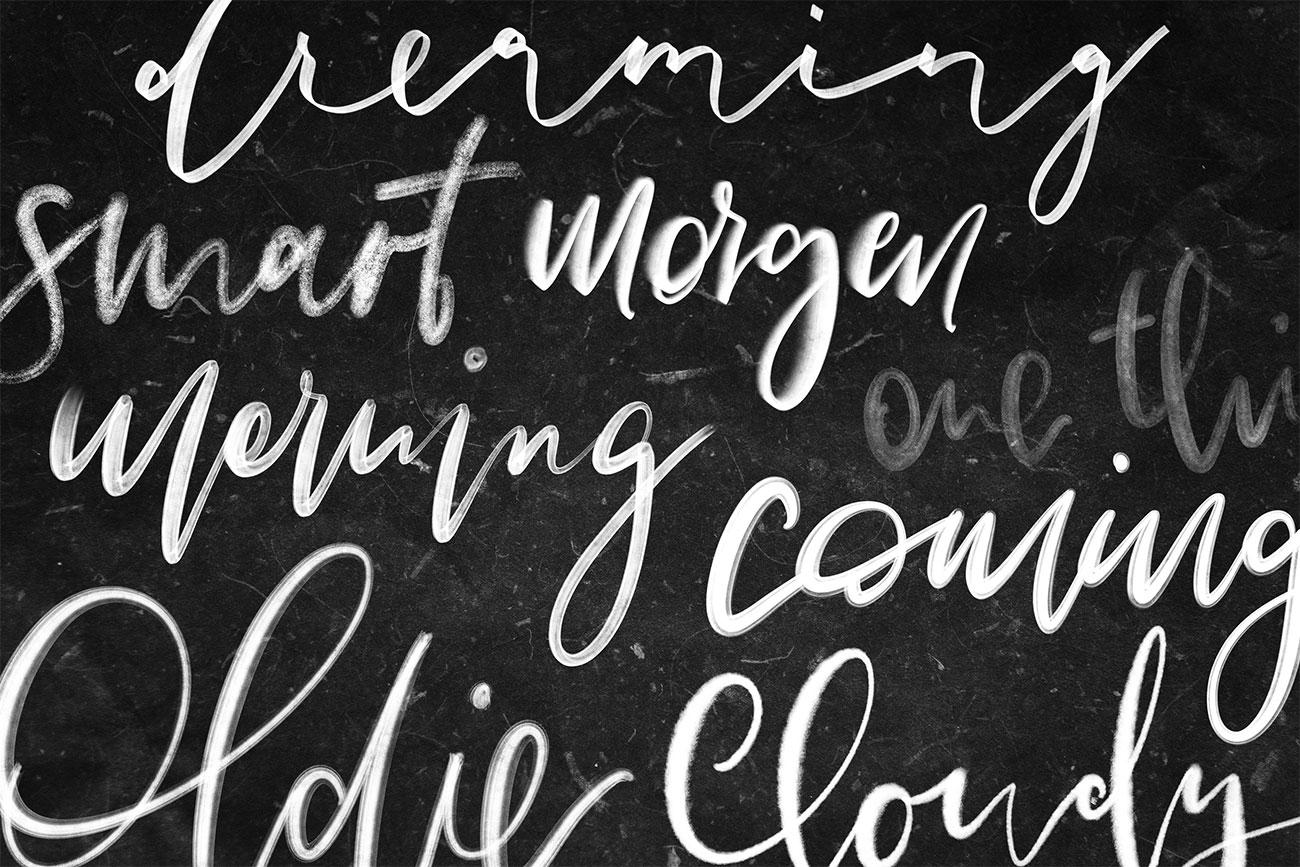 dreaming
smart morgen
one thi
morning
coming
Oldie Cloudy